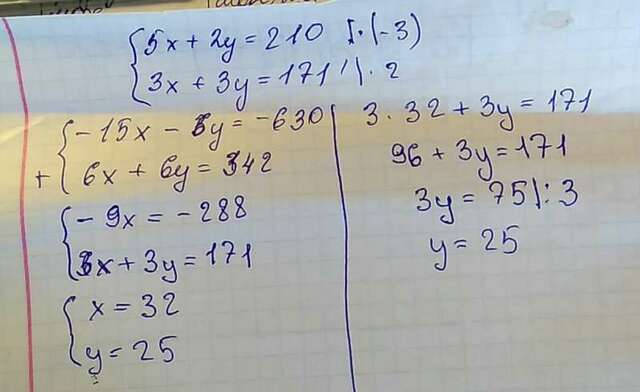 5x + 2y = 210 |·(-3)
3x + 3y = 171 |·2
-15x - 6y = -630
+ 6x + 6y = 342
-9x = -288
3x + 3y = 171
x = 32
y = 25
3·32 + 3y = 171
96 + 3y = 171
3y = 75 |:3
y = 25